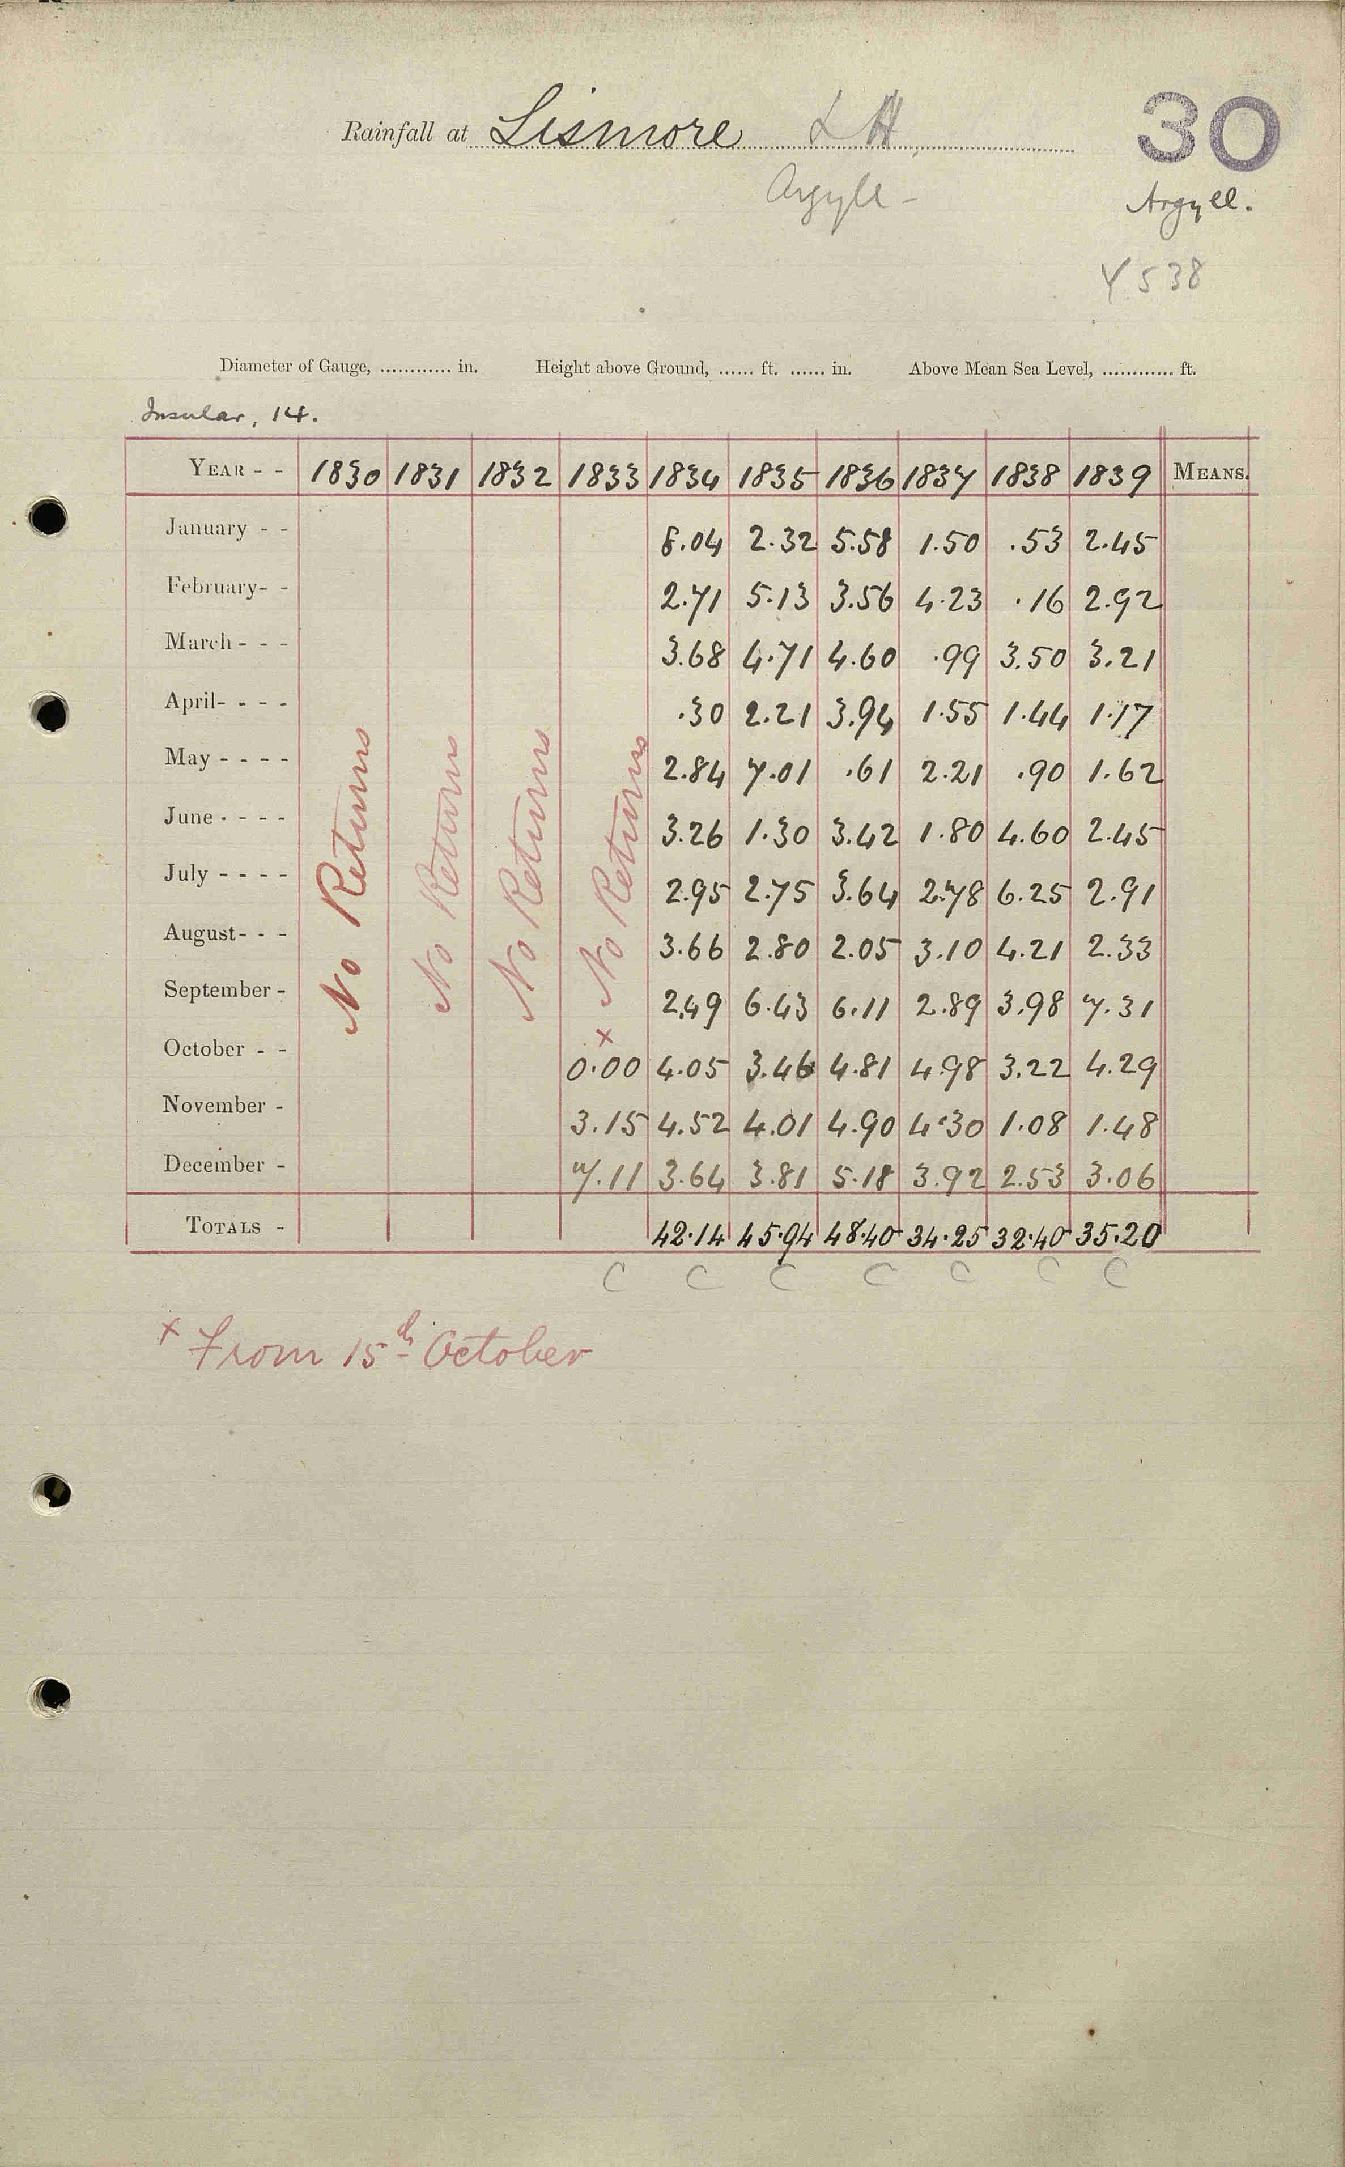 30
Rainfall at Lismore L H.
Argyle -
Argyll.
Y 538
Diameter of Gauge, ............ in. Height above Ground, ...... ft. ...... in. Above Mean Sea Level, ............ ft.
Insular, 14.
YEAR - - 1830 1831 1832 1833 1834 1835 1836 1837 1838 1839 MEANS.
January - - 8.04 2.32 5.58 1.50 .53 2.45
February- - 2.71 5.13 3.56 4.23 .16 2.92
March - - - 3.68 4.71 4.60 .99 3.50 3.21
April- - - - .30 2.21 3.94 1.55 1.44 1.17
May - - - - 2.84 7.01 .61 2.21 .90 1.62
June - - - - 3.26 1.30 3.42 1.80 4.60 2.45
July - - - - 2.95 2.75 3.64 2.78 6.25 2.91
August- - - 3.66 2.80 2.05 3.10 4.21 2.33
September - 2.49 6.43 6.11 2.89 3.98 7.31
No Returns
No Returns
No Returns
x No Returns
October - - 0.00 4.05 3.46 4.81 4.98 3.22 4.29
November - 3.15 4.52 4.01 4.90 4.30 1.08 1.48
December - 7.11 3.64 3.81 5.18 3.92 2.53 3.06
TOTALS - 42.14 45.94 48.40 34.25 32.40 35.20
C C C C C C C
x From 15th October